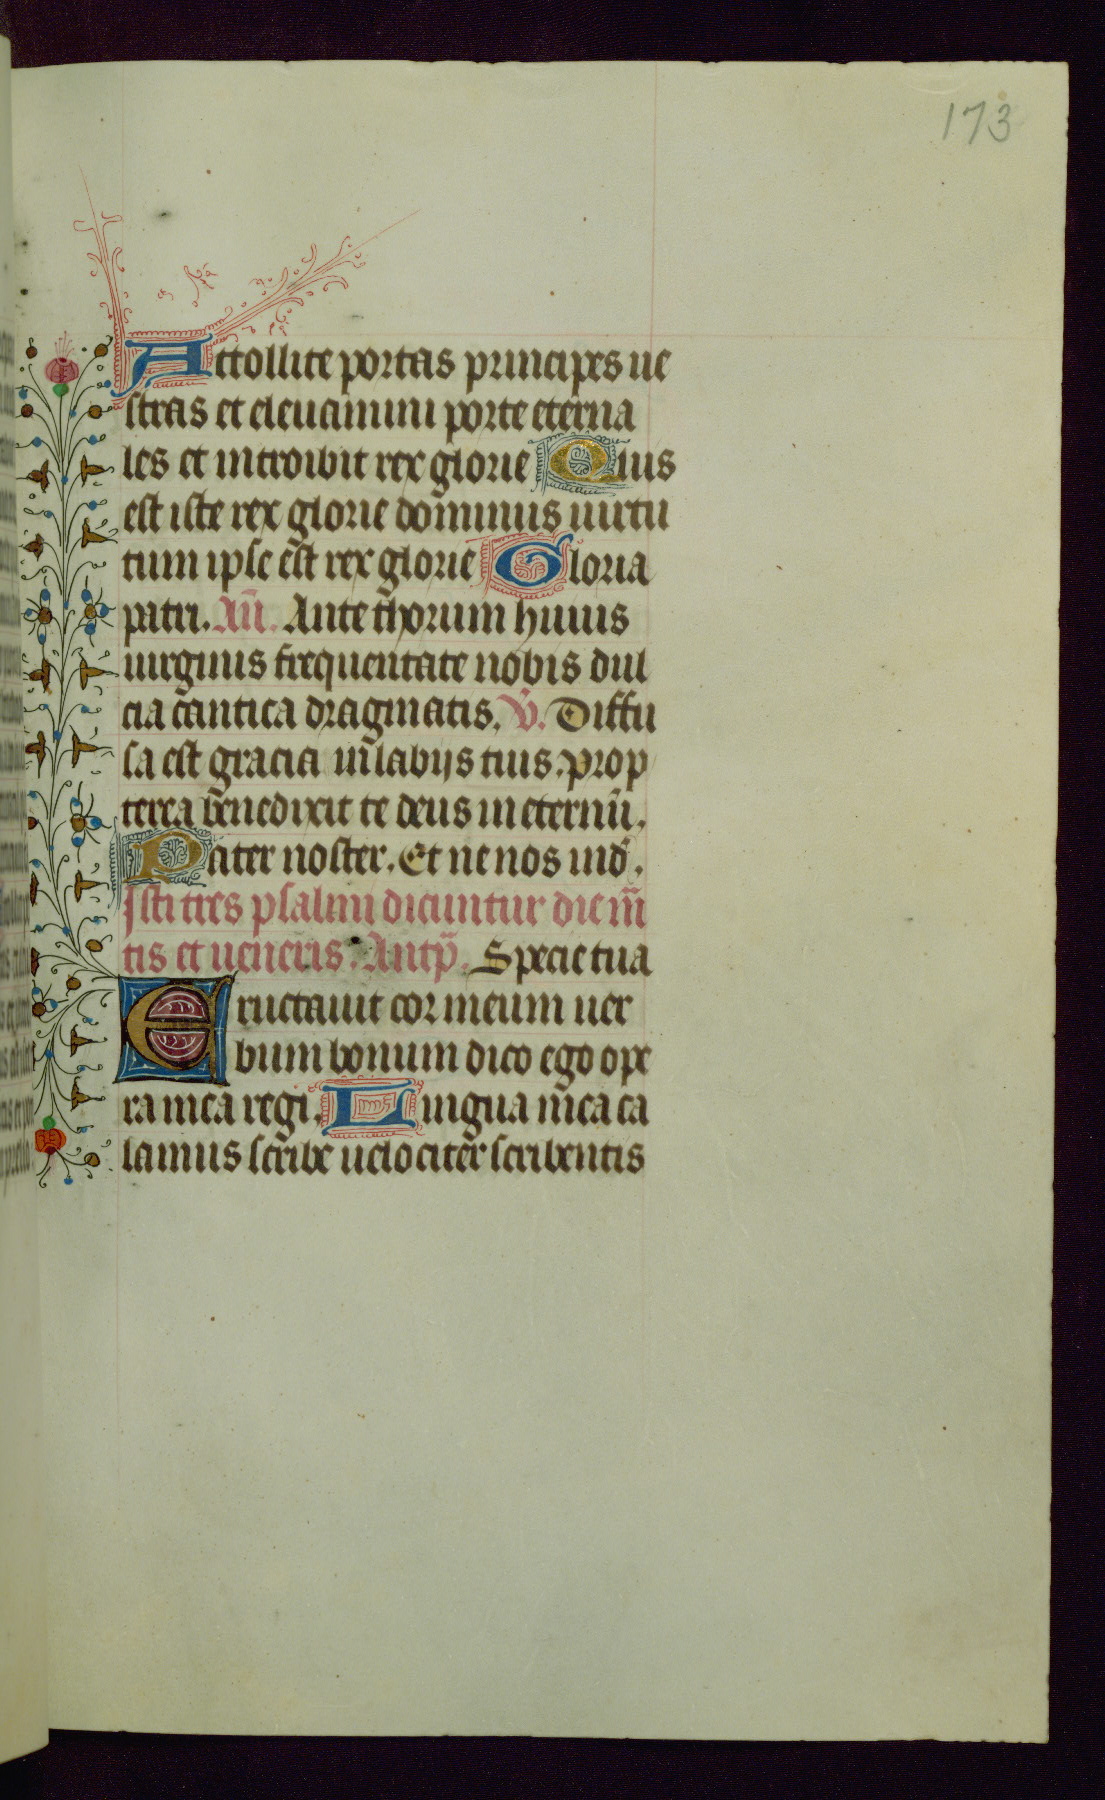 173
Attollite portas principes ue
stras et eleuamini porte eterna
les et introibit rex glorie Quis
est iste rex glorie dominus uirtu
tum ipse est rex glorie Gloria
patri. An̄. Ante thorum huius
uirginis frequentate nobis dul
cia cantica dragmatis. V̄. Diffu
sa est gracia in labijs tuis. prop
terea benedixit te deus in eternū.
Pater noster. Et ne nos ind̄.
Isti tres psalmi dicuntur die m̄
tis et ueneris. Antp̄. Specie tua
Eructauit cor meum uer
bum bonum dico ego ope
ra mea regi. Lingua mea ca
lamus scribe uelociter scribentis